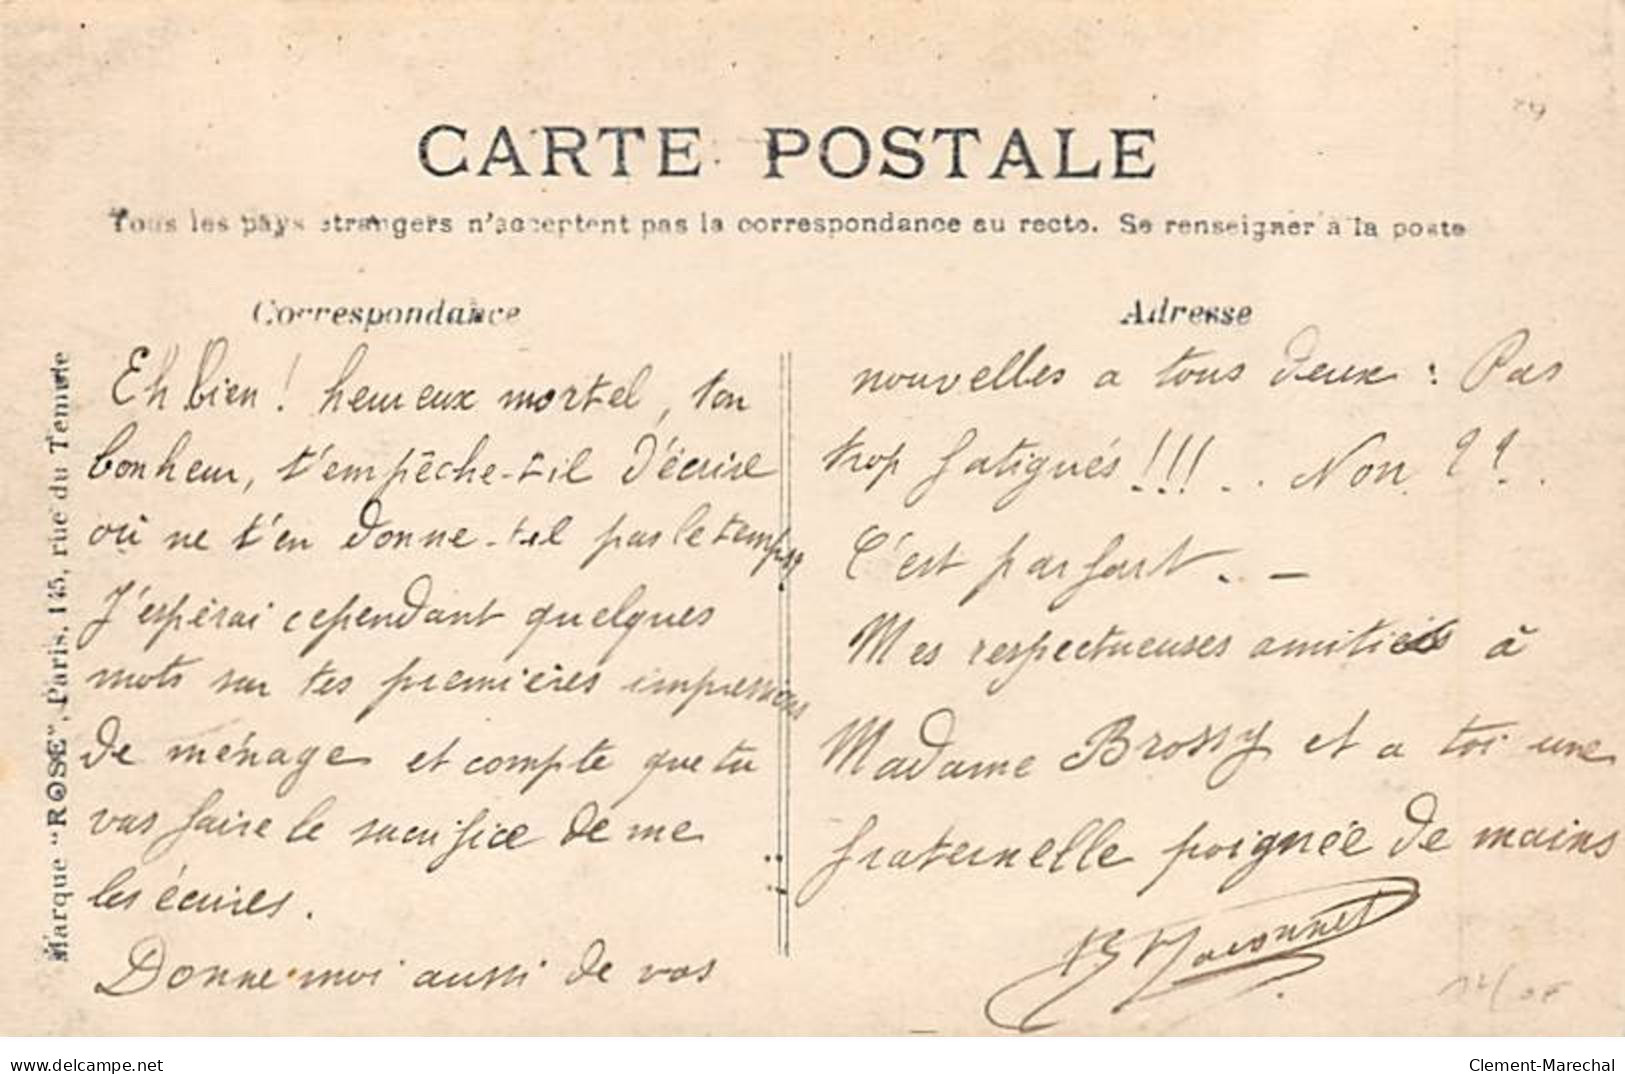 CARTE POSTALE
Tous les pays étrangers n'acceptent pas la correspondance au recto. Se renseigner à la poste
Correspondance
Adresse
Marque "ROSE", Paris, 125, rue du Temple
Eh bien! heureux mortel, ton
bonheur, t'empêche-t-il d'écrire
où ne t'en donne-t-el pas le temps??
J'espérai cependant quelques
mots sur tes premières impressions
de ménage et compte que tu
vas faire le sacrifice de me
les écrires.
Donne-moi aussi de vos
nouvelles a tous deux : Pas
trop fatigués!!!... Non ??.
C'est parfait. -
Mes respectueuses amitiés à
Madame Brossy et a toi une
fraternelle poignée de mains
delcampe.net
Clement-Marechal